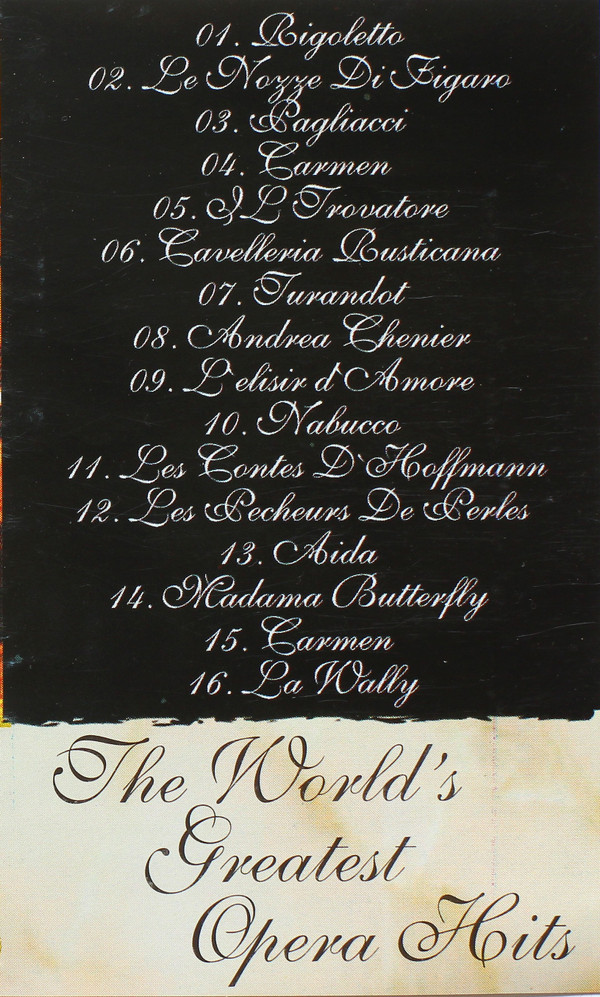 01. Rigoletto
02. Le Nozze Di Figaro
03. Pagliacci
04. Carmen
05. IL Trovatore
06. Cavelleria Rusticana
07. Turandot
08. Andrea Chenier
09. L`elisir d`Amore
10. Nabucco
11. Les Contes D`Hoffmann
12. Les Pecheurs De Perles
13. Aida
14. Madama Butterfly
15. Carmen
16. La Wally
The World's
Greatest
Opera Hits